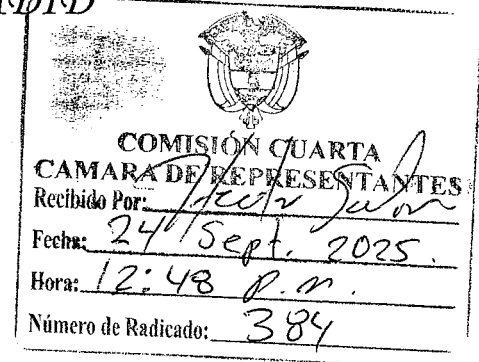 COMISIÓN CUARTA
CAMARA DE REPRESENTANTES
Recibido Por:
Fecha: 24 Sept. 2025.
Hora: 12:48 p.m.
Número de Radicado: 384